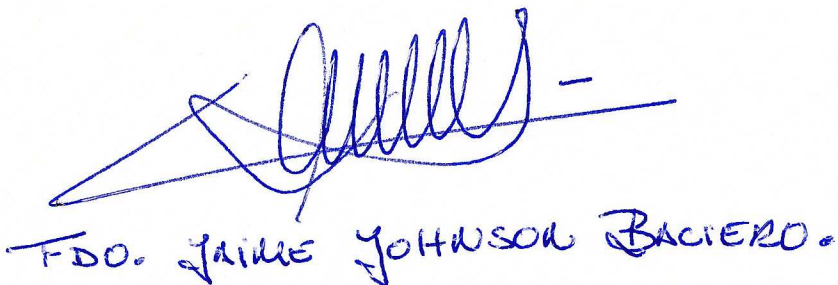 FDO. JAIME JOHNSON BACIERO.